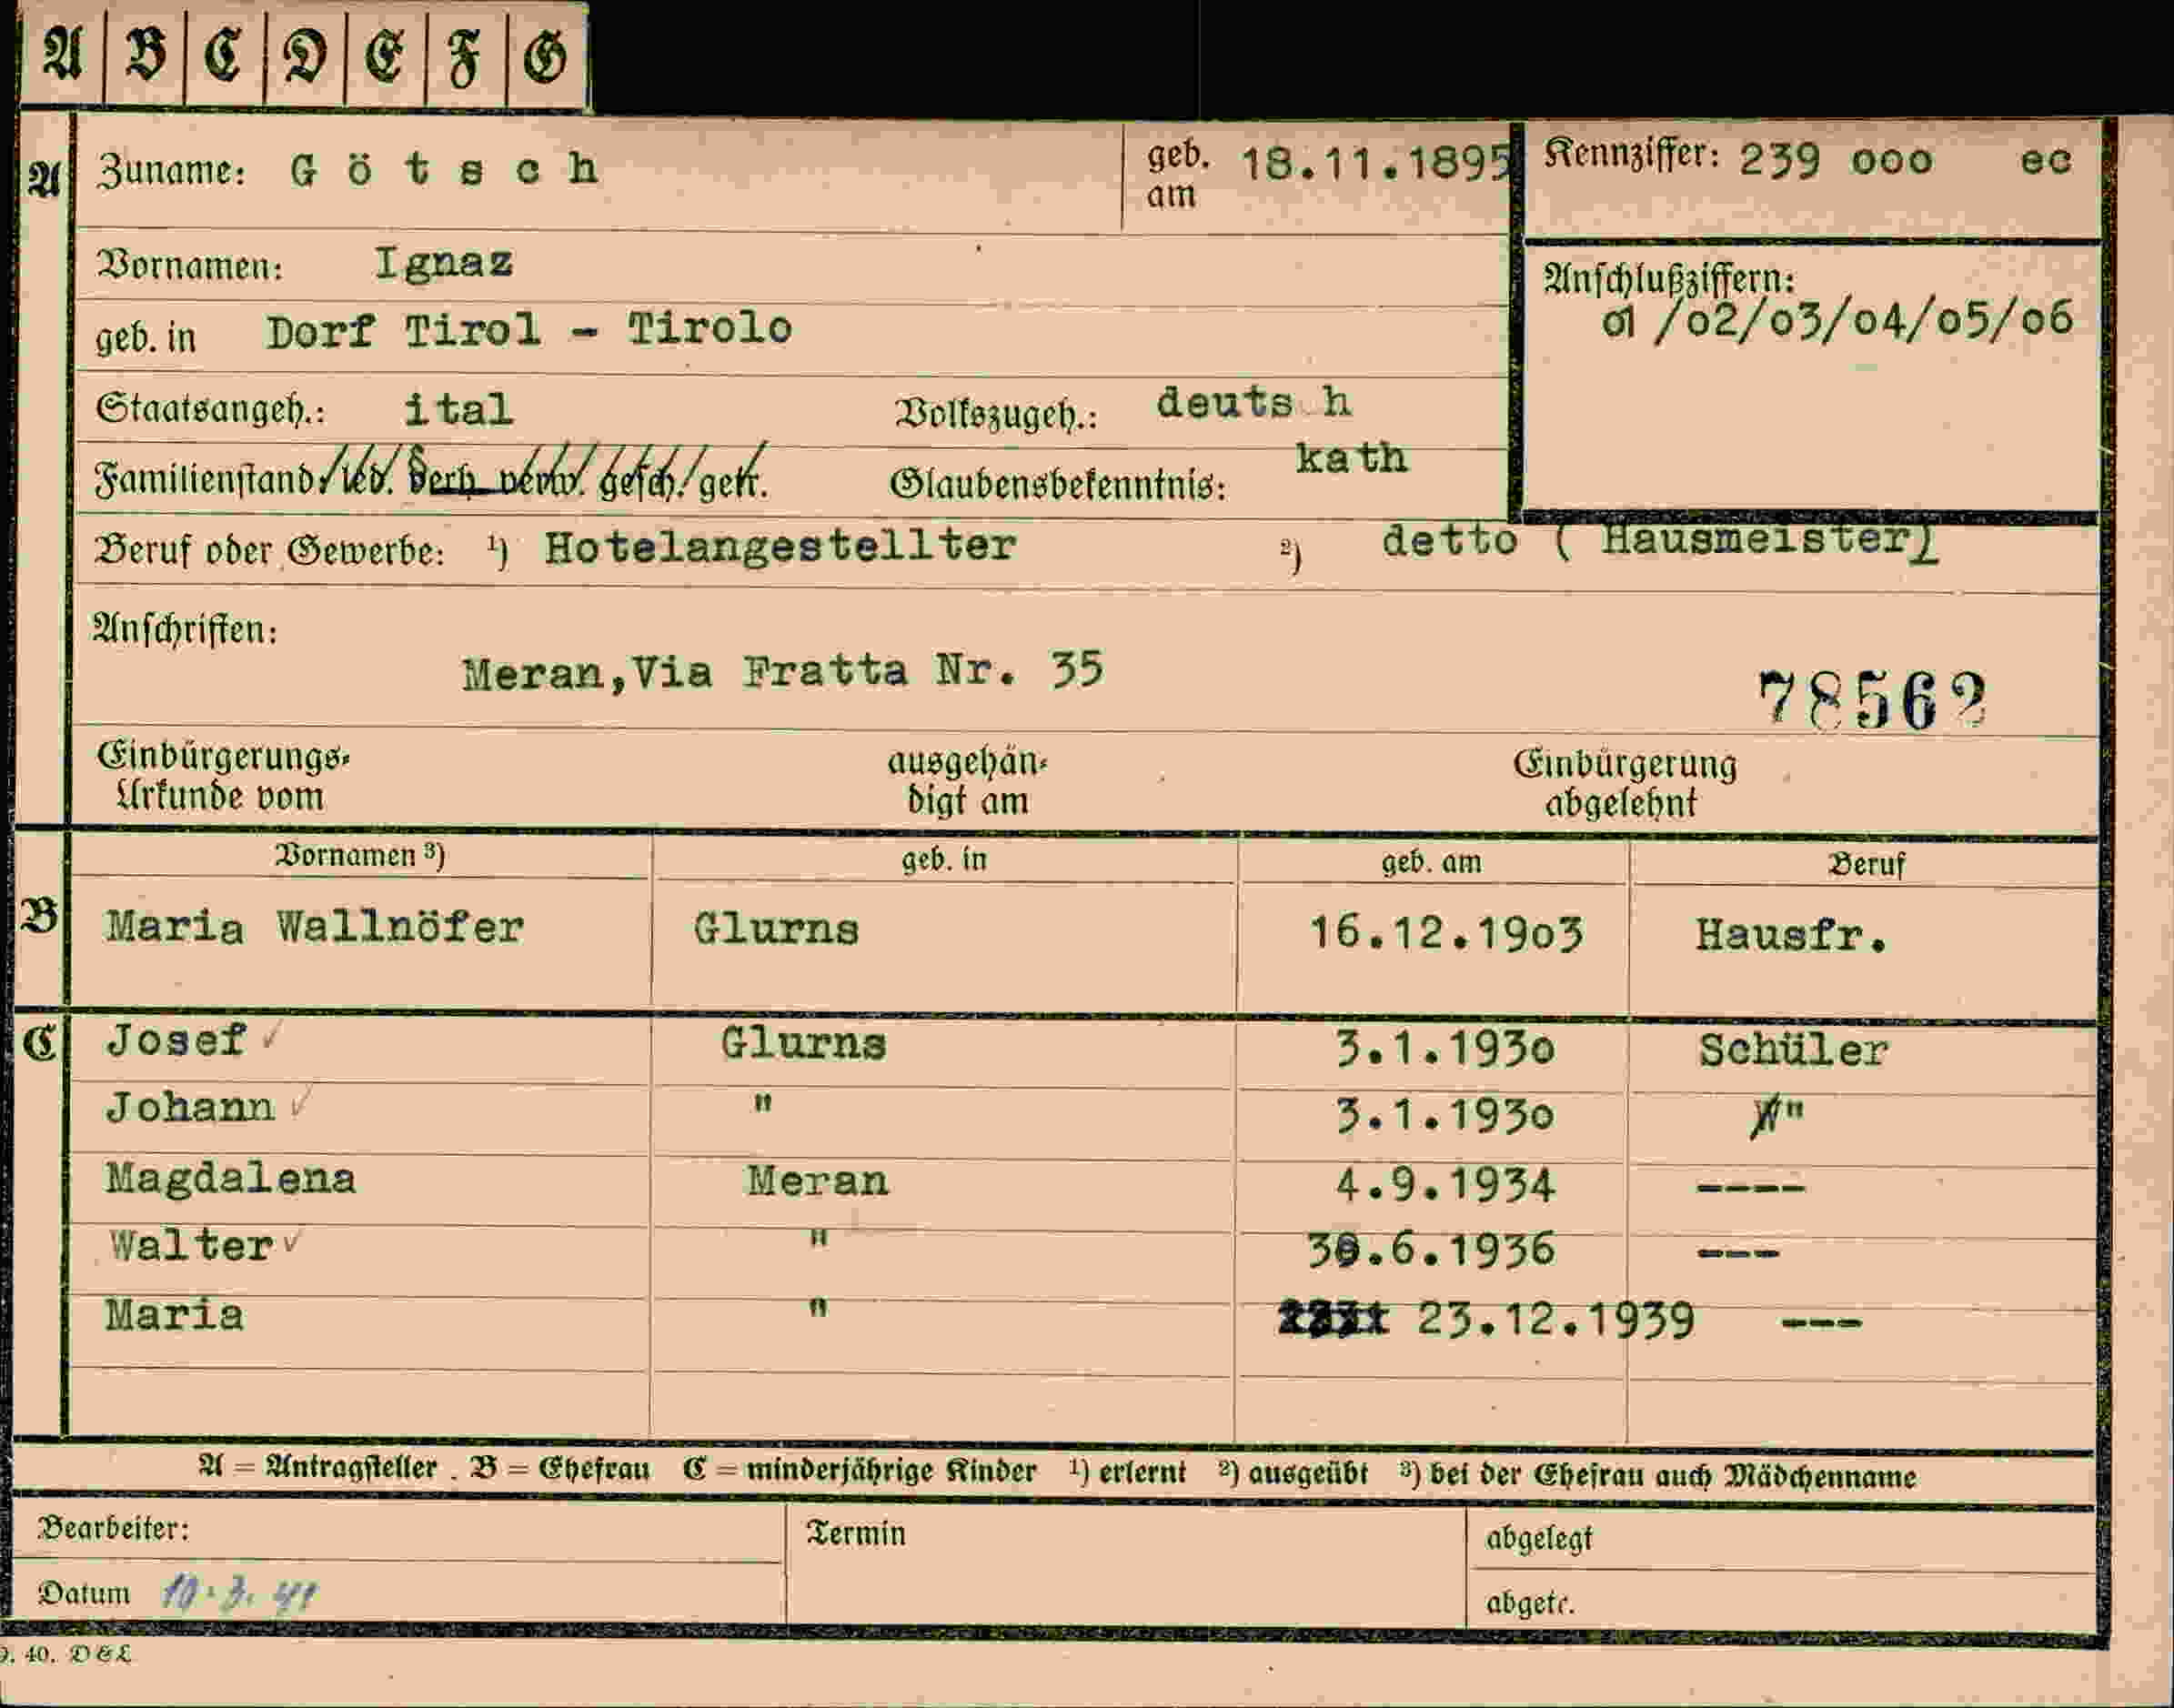 A B C D E F G
A Zuname: Götsch geb. am 18.11.1895 Kennziffer: 239 000 ec
Vornamen: Ignaz
Anschlußziffern:
01/02/03/04/05/06
geb. in Dorf Tirol - Tirolo
Staatsangeh.: ital Volkszugeh.: deuts h
Familienstand: led. verh. verw. gesch. getr. Glaubensbekenntnis: kath
Beruf oder Gewerbe: ¹) Hotelangestellter ²) detto ( Hausmeister)
Anschriften:
Meran,Via Fratta Nr. 35
78562
Einbürgerungs- ausgehän- Einbürgerung
Urkunde vom digt am abgelehnt
Vornamen ³) geb. in geb. am Beruf
B Maria Wallnöfer Glurns 16.12.1903 Hausfr.
C Josef ✓ Glurns 3.1.1930 Schüler
Johann ✓ " 3.1.1930 "
Magdalena Meran 4.9.1934 ----
Walter ✓ " 30.6.1936 ---
Maria " 23.12.1939 ---
A = Antragsteller . B = Ehefrau C = minderjährige Kinder ¹) erlernt ²) ausgeübt ³) bei der Ehefrau auch Mädchenname
Bearbeiter: Termin abgelegt
Datum 10.3.41 abgetr.
9. 40. D & L